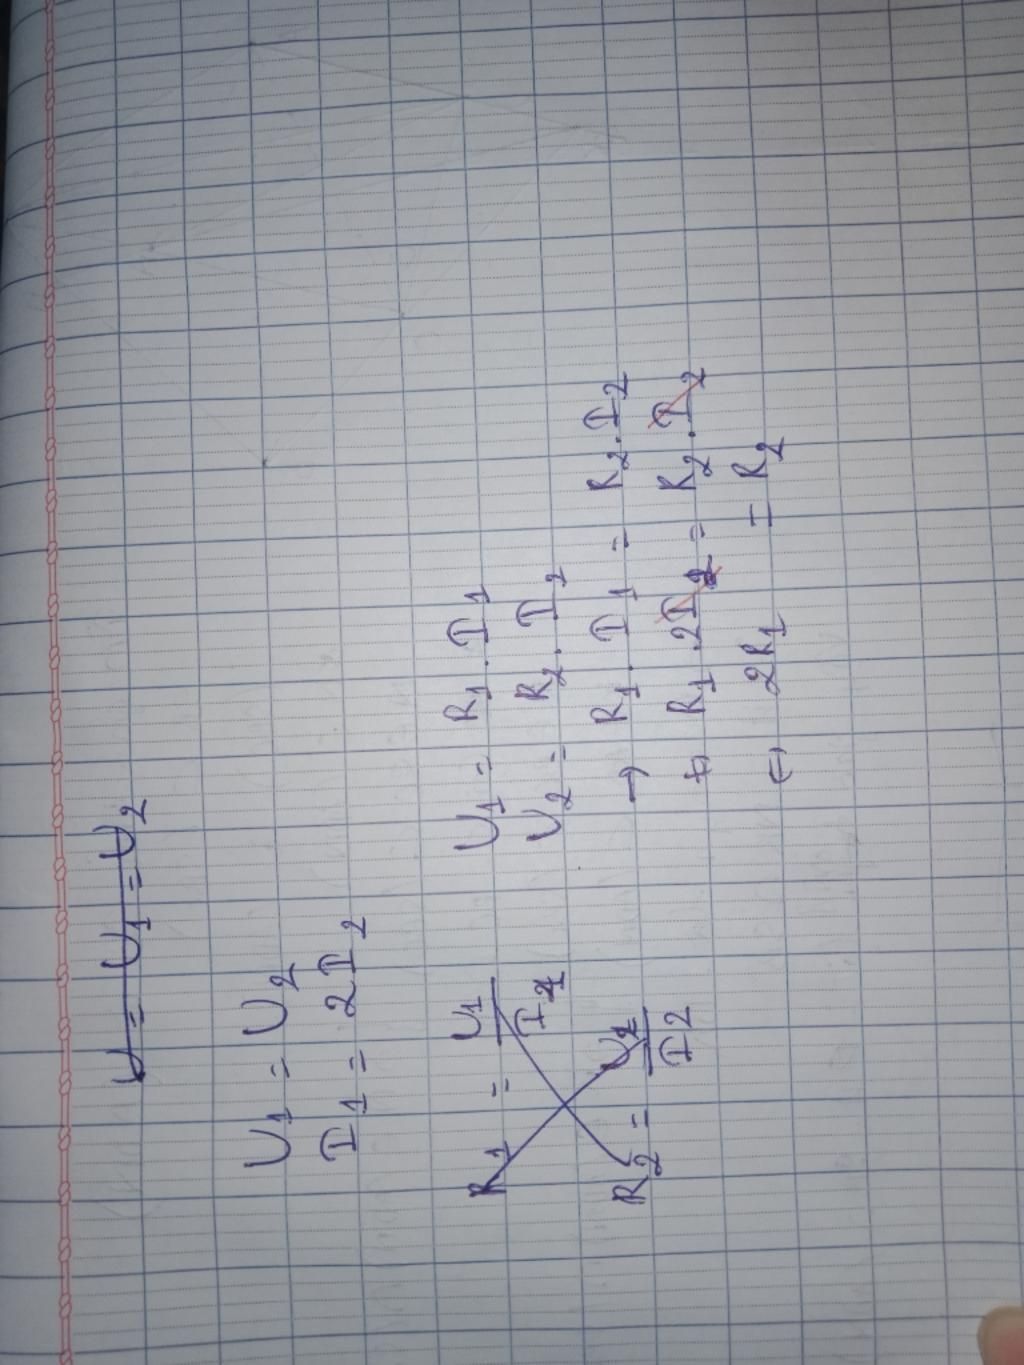 U = U₁ = U₂
U₁ = U₂
I₁ = 2I₂
R₁ = U₁/I₁
R₂ = U₂/I2
U₁ = R₁ . I₁
U₂ = R₂ . I₂
→ R₁ . I₁ = R₂ . I₂
R₁ . 2I₂ = R₂ . I₂
2R₁ = R₂